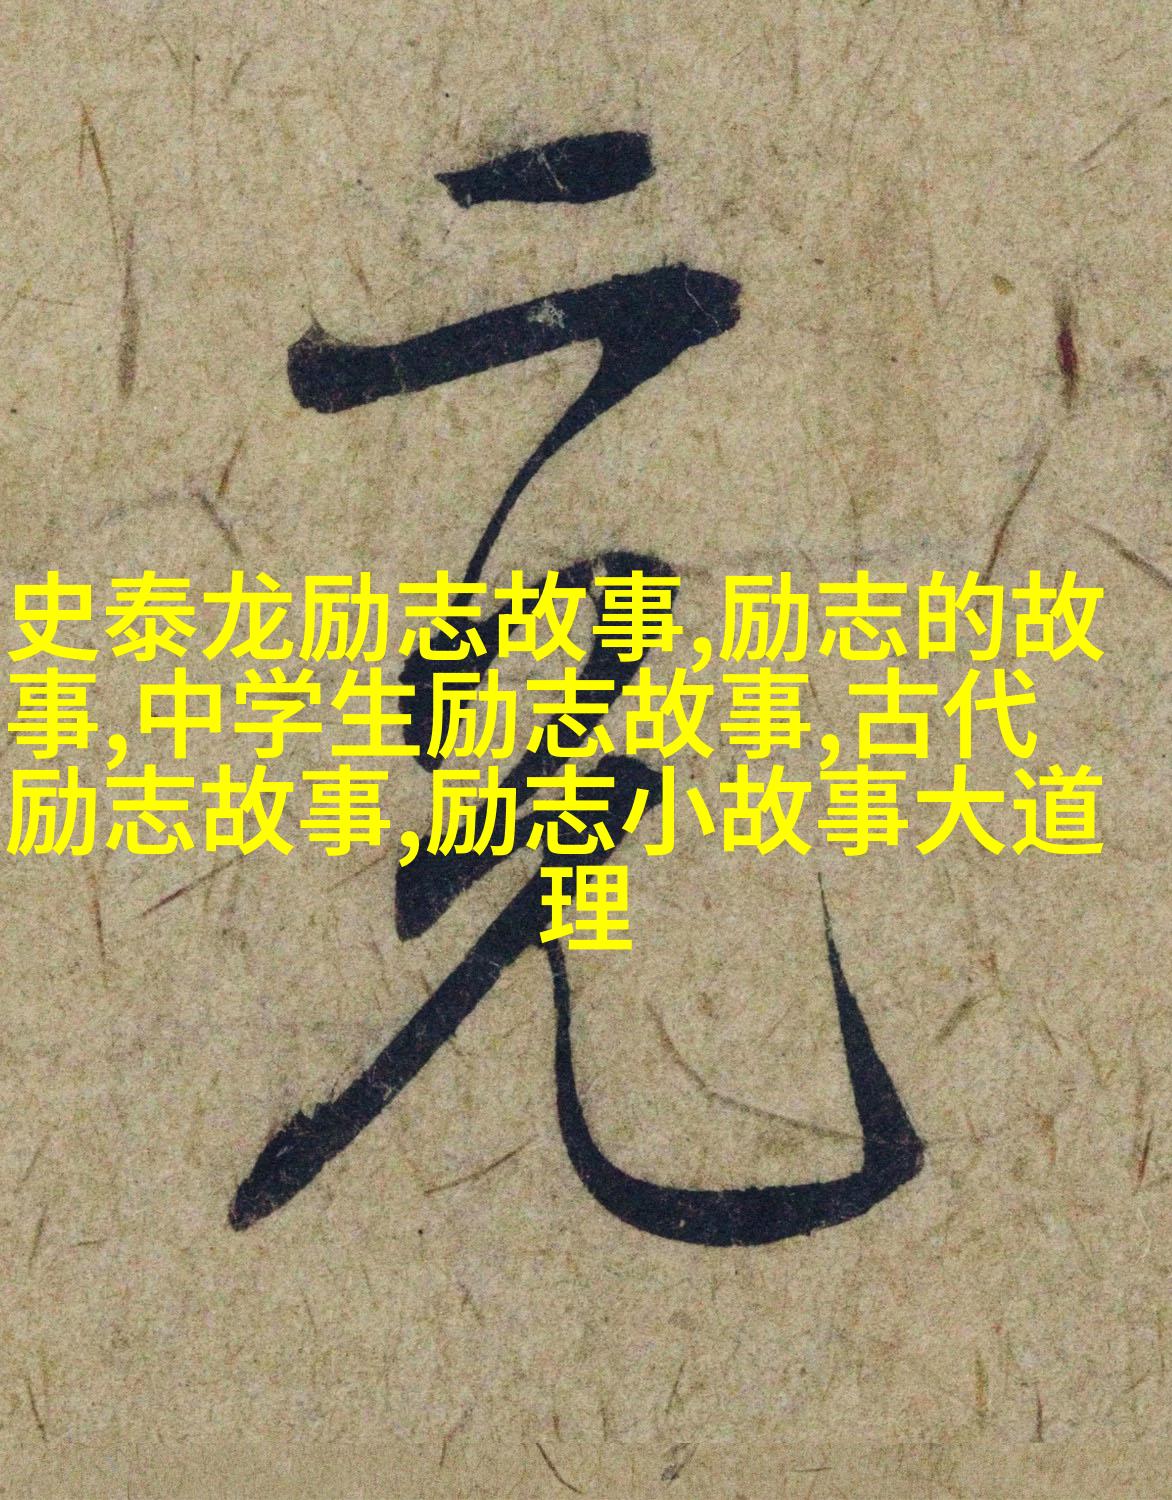 史泰龙励志故事,励志的故
事,中学生励志故事,古代
励志故事,励志小故事大道
理